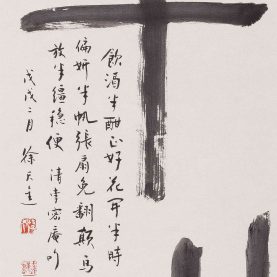 飲酒半酣正好花開半時
偏妍半帆張扇免翻顛馬
放半韁穩便 清李密庵句
戊戌二月 徐天進